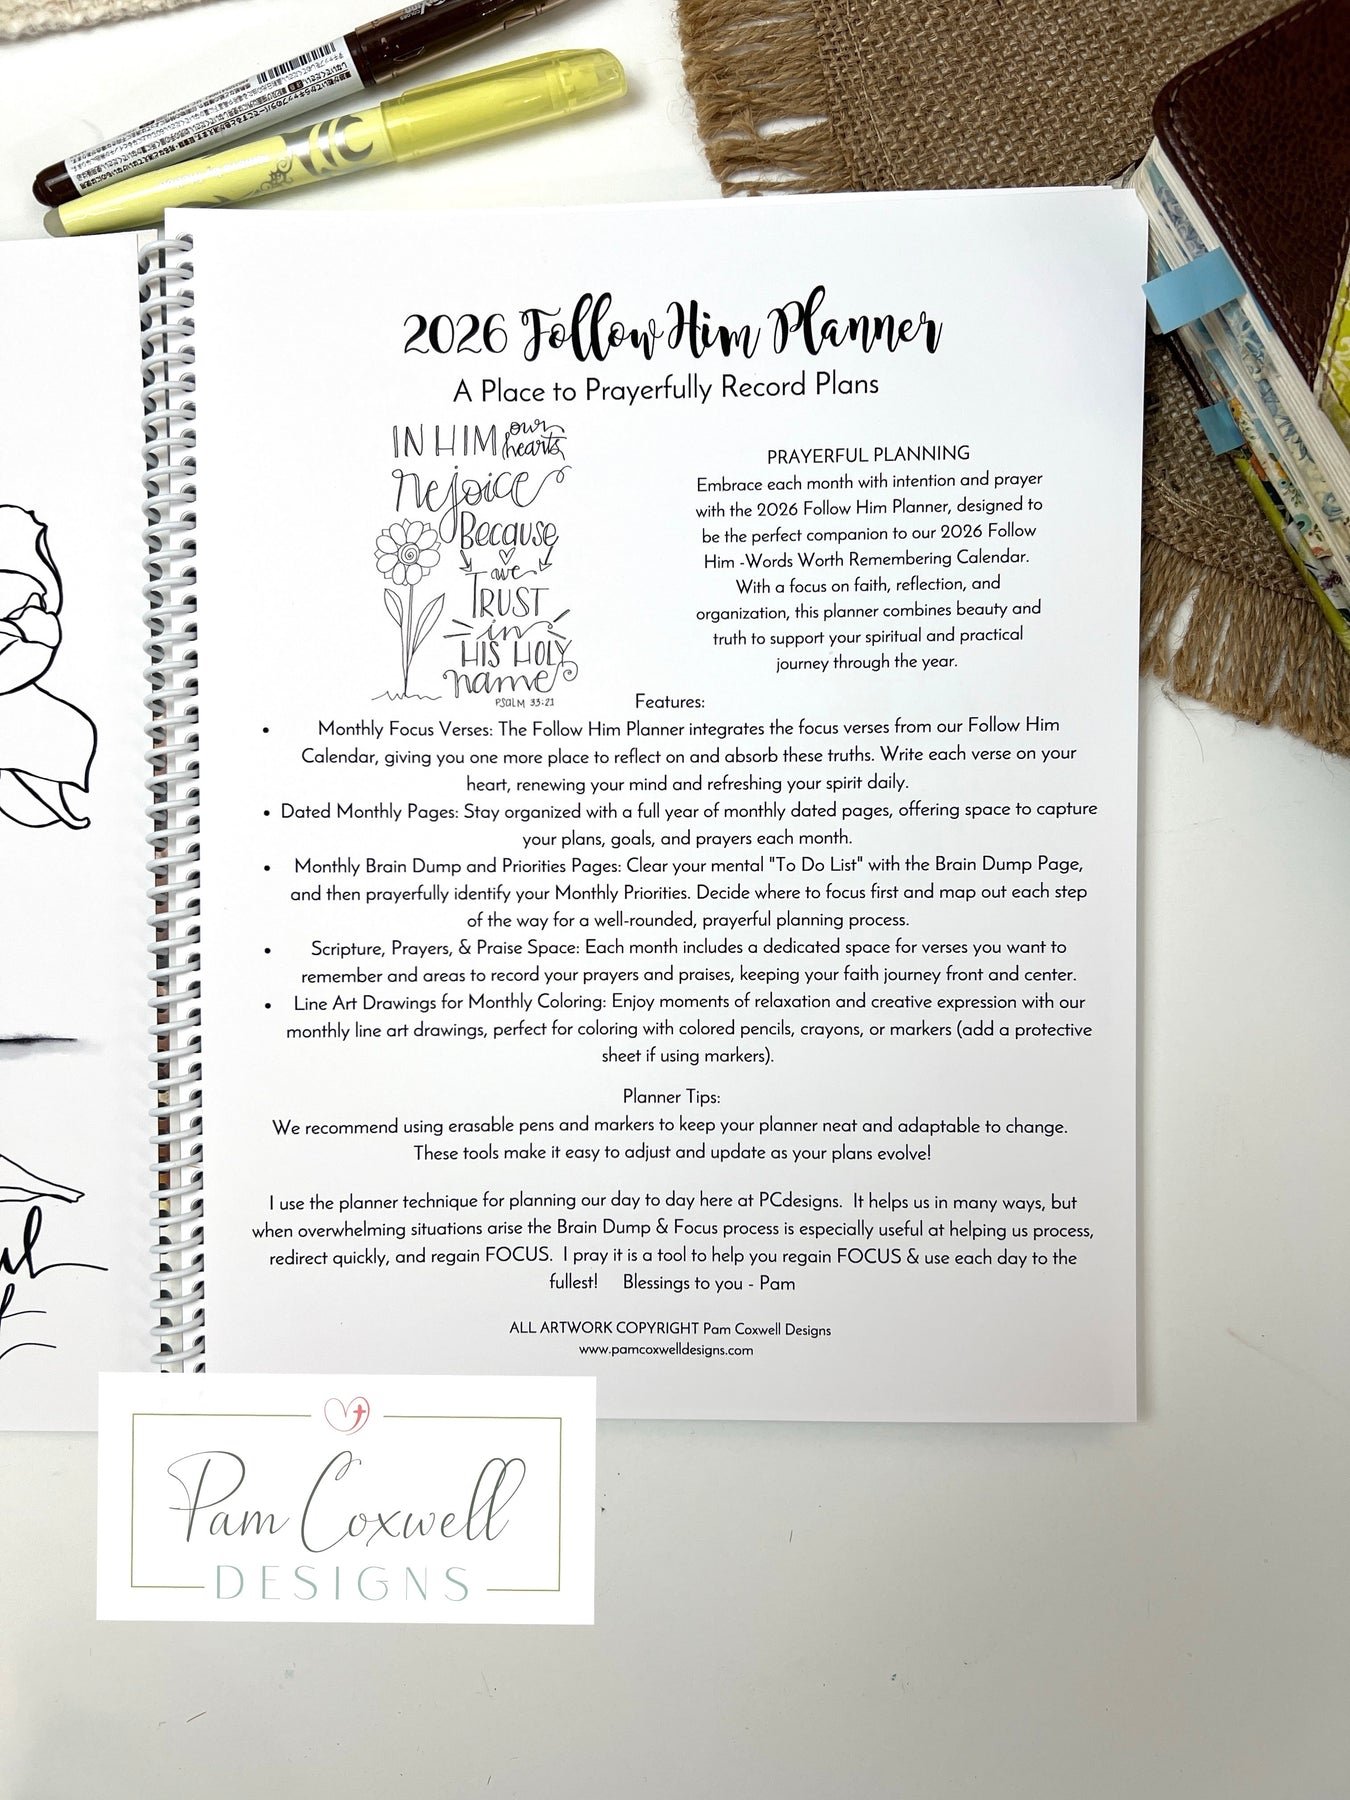 2026 Follow Him Planner
A Place to Prayerfully Record Plans
IN HIM our hearts
rejoice
Because
we
TRUST
in
HIS HOLY
name
PSALM 33:21
PRAYERFUL PLANNING
Embrace each month with intention and prayer
with the 2026 Follow Him Planner, designed to
be the perfect companion to our 2026 Follow
Him -Words Worth Remembering Calendar.
With a focus on faith, reflection, and
organization, this planner combines beauty and
truth to support your spiritual and practical
journey through the year.
Features:
• Monthly Focus Verses: The Follow Him Planner integrates the focus verses from our Follow Him
Calendar, giving you one more place to reflect on and absorb these truths. Write each verse on your
heart, renewing your mind and refreshing your spirit daily.
• Dated Monthly Pages: Stay organized with a full year of monthly dated pages, offering space to capture
your plans, goals, and prayers each month.
• Monthly Brain Dump and Priorities Pages: Clear your mental "To Do List" with the Brain Dump Page,
and then prayerfully identify your Monthly Priorities. Decide where to focus first and map out each step
of the way for a well-rounded, prayerful planning process.
• Scripture, Prayers, & Praise Space: Each month includes a dedicated space for verses you want to
remember and areas to record your prayers and praises, keeping your faith journey front and center.
• Line Art Drawings for Monthly Coloring: Enjoy moments of relaxation and creative expression with our
monthly line art drawings, perfect for coloring with colored pencils, crayons, or markers (add a protective
sheet if using markers).
Planner Tips:
We recommend using erasable pens and markers to keep your planner neat and adaptable to change.
These tools make it easy to adjust and update as your plans evolve!
I use the planner technique for planning our day to day here at PCdesigns. It helps us in many ways, but
when overwhelming situations arise the Brain Dump & Focus process is especially useful at helping us process,
redirect quickly, and regain FOCUS. I pray it is a tool to help you regain FOCUS & use each day to the
fullest! Blessings to you - Pam
ALL ARTWORK COPYRIGHT Pam Coxwell Designs
www.pamcoxwelldesigns.com
Pam Coxwell
DESIGNS